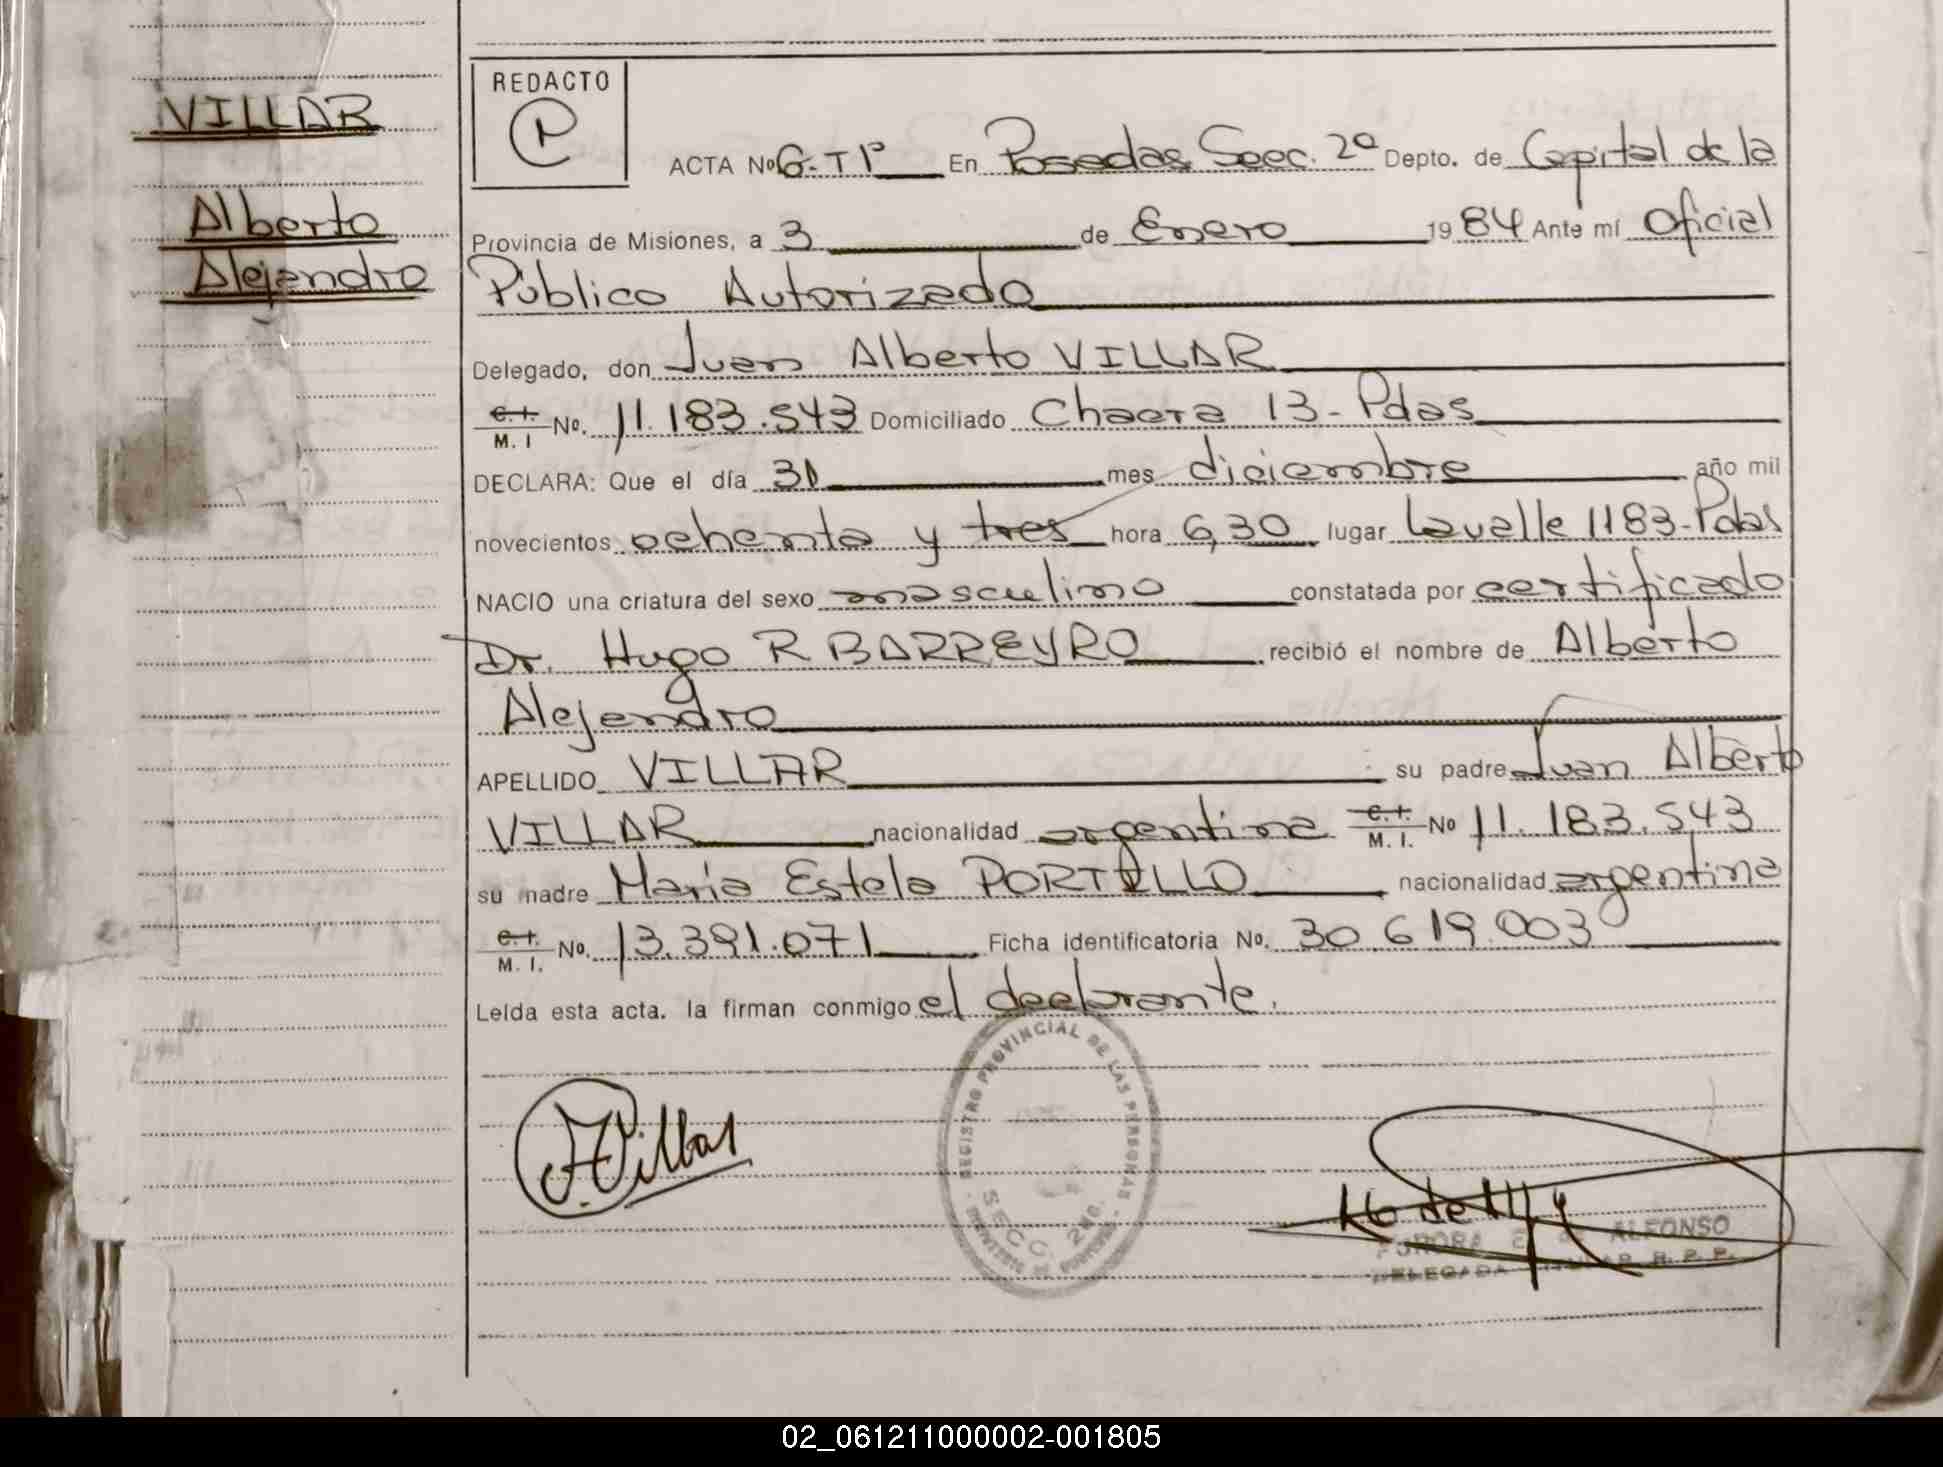 VILLAR
Alberto
Alejandro
REDACTO
P
ACTA Nº 6-Tº1º En Posadas Secc. 2ª Depto. de Capital de la
Provincia de Misiones, a 3 de Enero 1984 Ante mí Oficial
Público Autorizado
Delegado, don Juan Alberto VILLAR
C.I. M. I No. 11.183.543 Domiciliado Chacra 13-Pdas
DECLARA: Que el día 30 mes diciembre año mil
novecientos ochenta y tres hora 6,30 lugar Lavalle 1183-Pdas
NACIO una criatura del sexo masculino constatada por certificado
Dr. Hugo R BARREYRO recibió el nombre de Alberto
Alejandro
APELLIDO VILLAR su padre Juan Alberto
VILLAR nacionalidad argentina C.I. M. I. No 11.183.543
su madre Maria Estela PORTILLO nacionalidad argentina
C.I. M. I. No. 13.391.071 Ficha identificatoria No. 30.619.003
Leida esta acta. la firman conmigo el declarante.
JVillar
REGISTRO PROVINCIAL DE LAS PERSONAS
SECC. 2da.
ALFONSO
DELEGADA TITULAR R. P. P.
02_061211000002-001805